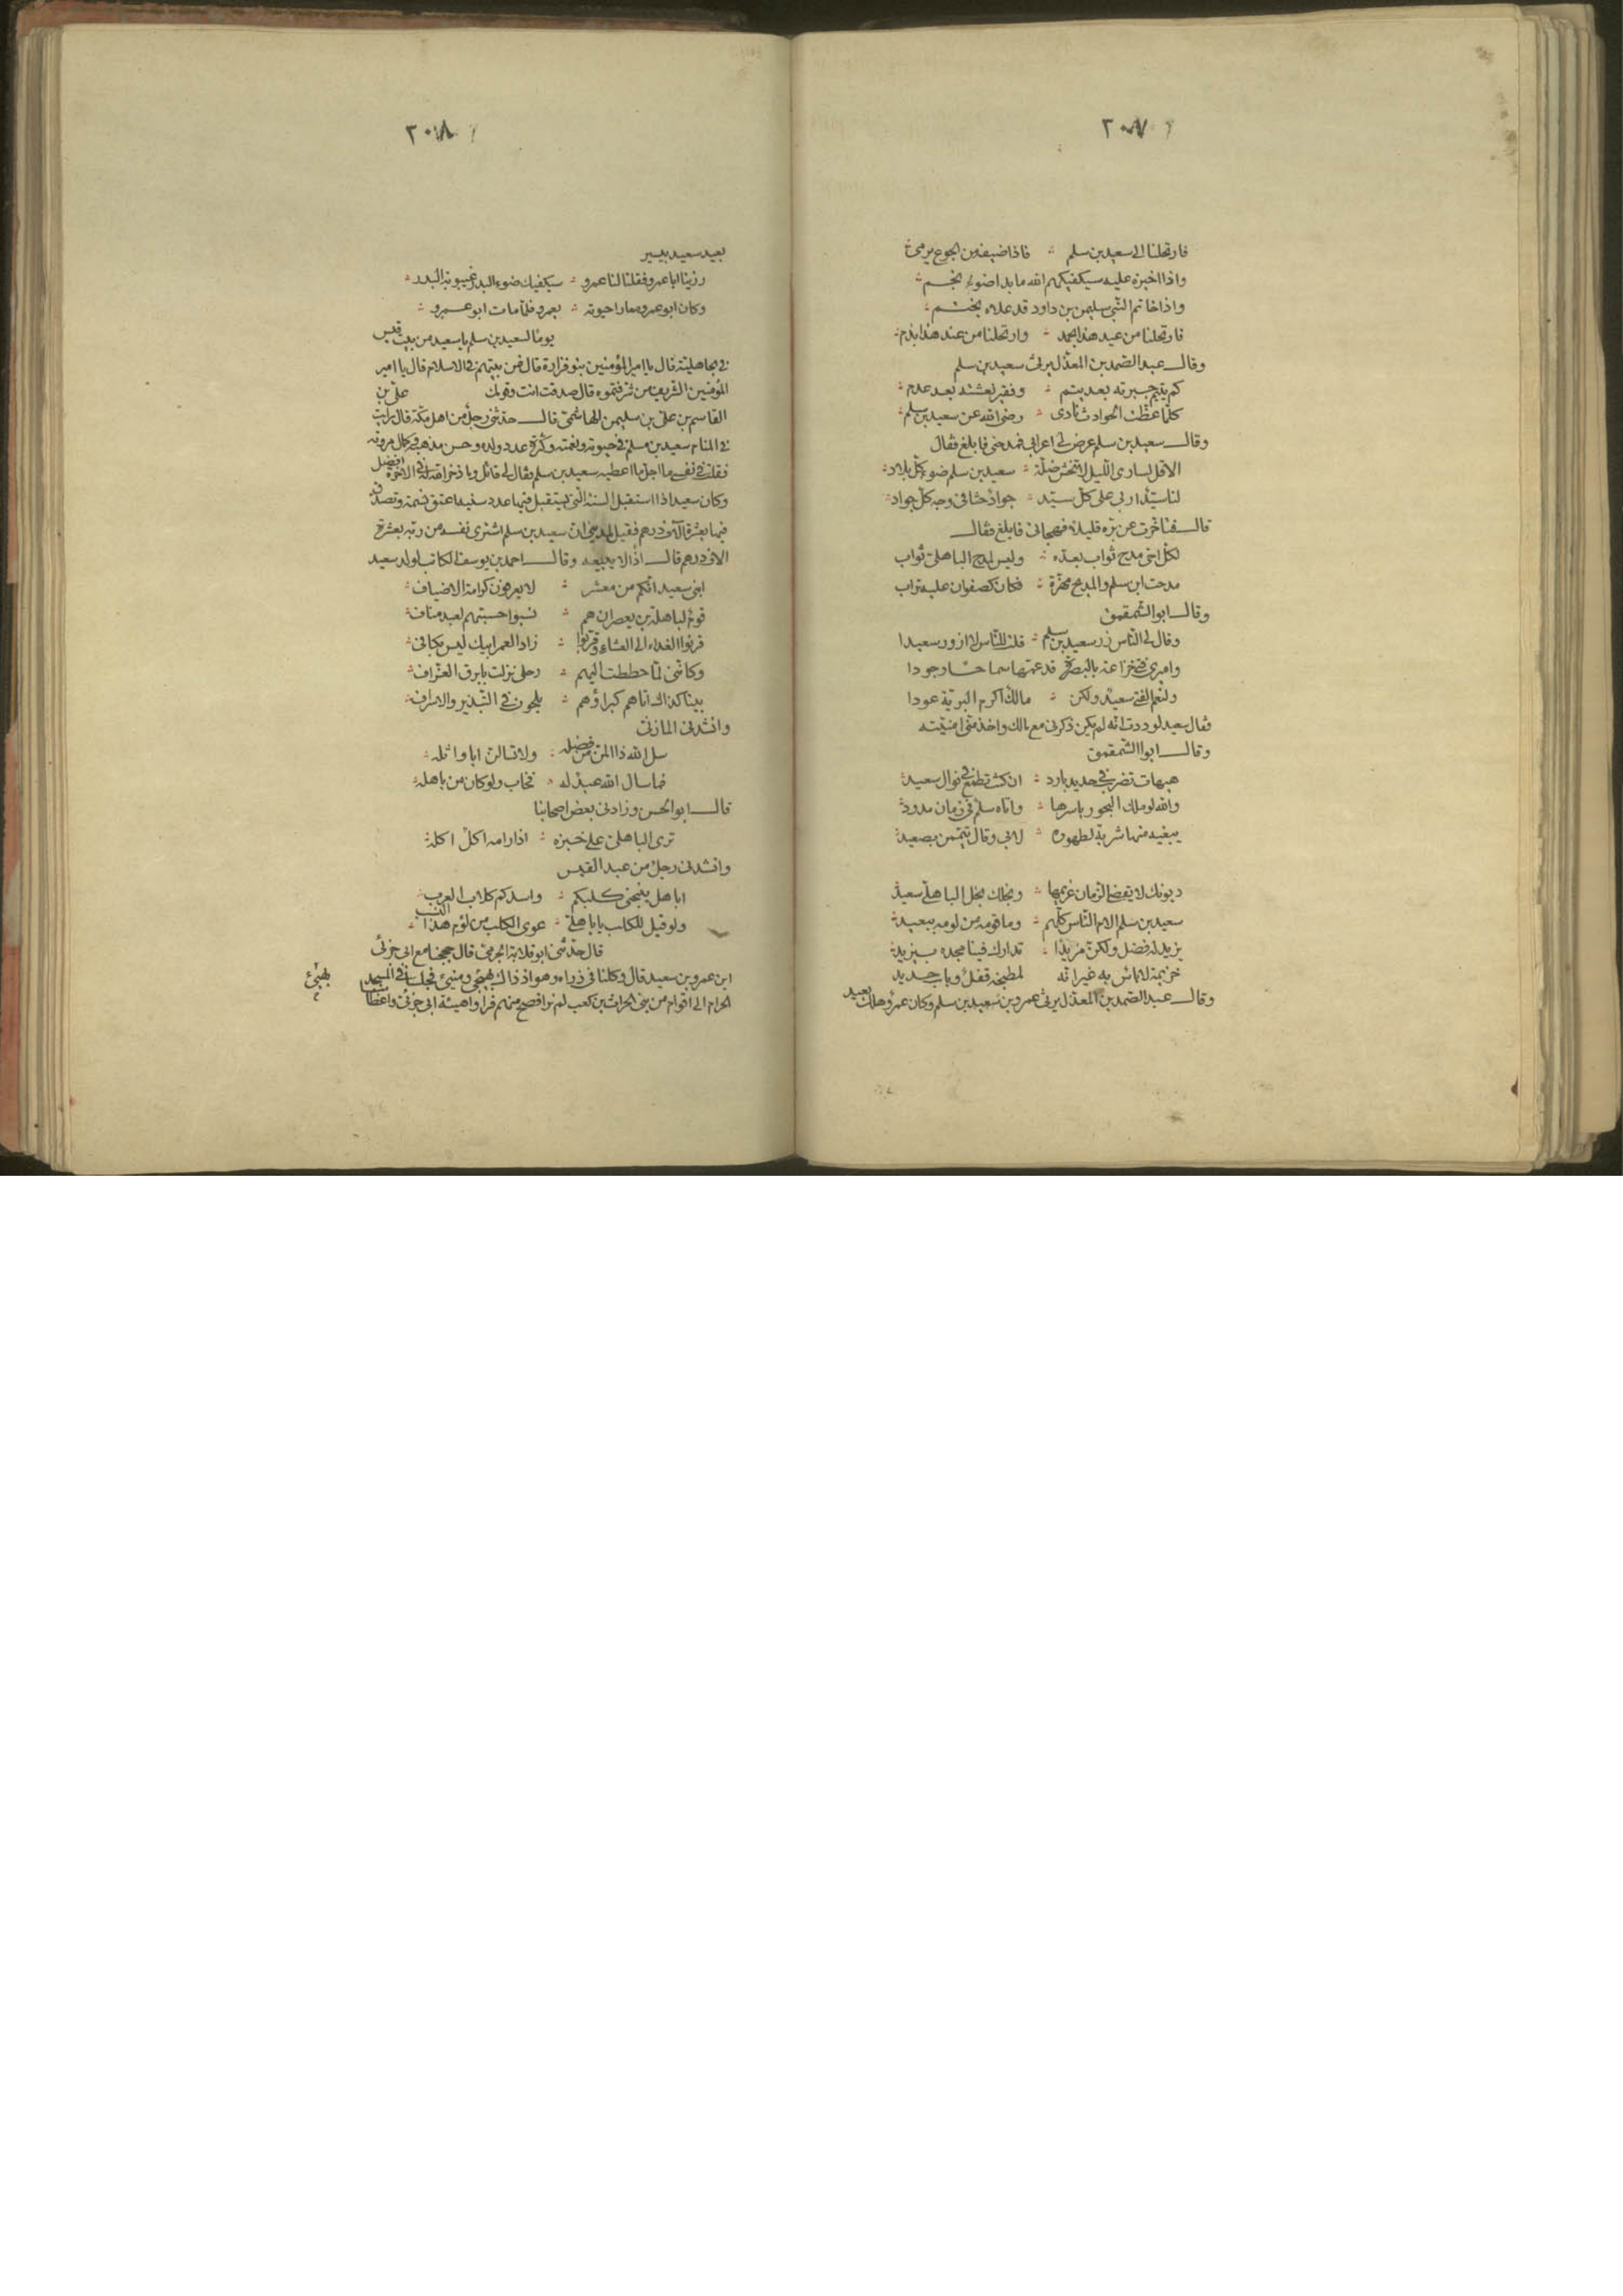 ٢٠٧
فارتحلنا الى سعيد بن سلم ؞ فاذا ضيفه من الجوع يرمى
واذا اخبزه عليه سيكفيكهم الله ما بدا ضوء نجم
واذا خاتم النبى سليمن بن داود قد علاه بختم
فارتحلنا من عند هذا بحمد ؞ وارتحلنا من عند هذا بذم
وقال عبد الصمد بن المعذل يرثى سعيد بن سلم
كم يتيم جبرته بعد يتم ؞ وفقير نعشته بعد عدم
كلما عظت الحوادث نادى ؞ رضى الله عن سعيد بن سلم
وقال سعيد بن سلم عرض لى اعرابى فمدحنى فابلغ فقال
الا قل لسارى الليل لا تخش ضلة ؞ سعيد بن سلم ضوء كل بلاد
لنا سيد اربى على كل سيد ؞ جواد حثا فى وجه كل جواد
قال فتاخرت عن بره قليلا فهجانى فابلغ فقال
لكل اخى مدح ثواب يعده ؞ وليس لمدح الباهلى ثواب
مدحت ابن سلم والمديح مهزة ؞ فكان كصفوان عليه تراب
وقال ابو الشمقمق
وقال لى الناس زر سعيد بن سلم ؞ قلت للناس لا ازور سعيدا
وامرى فى خزاعة بالبصرة قد عمها سماحا وجودا
ولنعم الفتى سعيد ولكن ؞ مالك اكرم البرية عودا
فقال سعيد لوددت انه لم يكن ذكرنى مع مالك واخذ منى امنيته
وقال ابوا الشمقمق
هيهات تضرب فى حديد بارد ؞ ان كنت تطمع فى نوال سعيد
والله لو ملك البحور باسرها ؞ واتاه سلم فى زمان مدود
يبغيه منها شربة لطهوره ؞ لابى وقال تيممن بصعيد
ديونك لا يقضى الزمان غريمها ؞ وبخلك بخل الباهلى سعيد
سعيد بن سلم الام الناس كلهم ؞ وما قومه من لومه ببعيد
يزيد له فضل ولكن مزيدا ؞ تدارك فينا مجده بيزيد
خزيمة لا باس به غير انه لمطبخه قفل وباب حديد
وقال عبد الصمد بن المعذل يرثى عمرو بن سعيد بن سلم وكان عمرو هلك بعيد
٢٠٨
بعيد سعيد بيسير
رزينا ابا عمرو فقلنا لنا عمرو ؞ سيكفيك ضوء البدر غيبوبة البدر
وكان ابو عمرو معارا حيوته ؞ بعمرو فلما مات مات ابو عمرو
يوما لسعيد بن سلم يا سعيد من بيت قيس
فى الجاهلية قال يا امير المؤمنين بنو فزارة قال فمن بيتهم فى الاسلام قال يا امير
المؤمنين الشريف من شرفتموه قال صدقت انت وقومك على بن
القاسم بن على بن سليمن الهاشمى قال حدثنى رجل من اهل مكة قال رايت
فى المنام سعيد بن مسلم فى حيوته ونعمته وكثرة عدد ولده وحسن مذهبه وكمال مروته
فقلت فى نفسى ما اجل ما اعطيه سعيد بن سلم فقال لى قائل وما ذخر الله له فى الاخرة افضل
وكان سعيد اذا استقبل السنة التى يستقبل فيها عدد سنيه اعتق نسمة وتصدق
فيها بعشرة آلاف درهم فقيل لمدينى ان سعيد بن سلم اشترى نفسه من ربه بعشرة
الاف درهم قال اذا لا يبيعه وقال احمد بن يوسف الكاتب لولد سعيد
ابنى سعيد انكم من معشر ؞ لا يعرفون كرامة الاضياف
قوم لباهلة بن يعصر ان هم ؞ نسبوا حسبتهم لعبد مناف
قرنوا الغداء الى العشاء وقربوا ؞ زادا لعمر ابيك ليس بكافى
وكاننى لما حططت اليهم ؞ رحلى نزلت بابرق العزاف
بينا كذاك اتاهم كبراؤهم ؞ يلحون فى التبذير والاسراف
وانشدنى المازنى
سل الله ذا المن من فضله ؞ ولا تسالن ابا واثله
فما سال الله عبد له ؞ فخاب ولو كان من باهله
قال ابو الحسن وزادنى بعض اصحابنا
ترى الباهلى على خبزه ؞ اذا رامه اكل اكله
وانشدنى رجل من عبد القيس
اباهل ينبحنى كلبكم ؞ واسدكم ككلاب العرب
ولو قيل للكلب يا باهلى ؞ عوى الكلب من لؤم هذا النسب
قال حدثنى ابو قلابة الجرمى قال حججنا مع ابى جزئ
ابن عمرو بن سعيد قال وكنا فى ذراه وهو اذ ذاك بهى وضئ فجلسنا فى المسجد
الحرام الى اقوام من بنى الحرث بن كعب لم نر افصح منهم فراوا هيئة ابى جزئ واعظامنا
بهئ